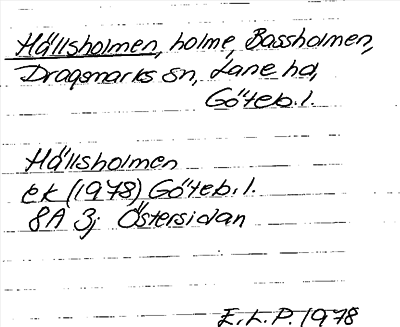 Hällsholmen, holme, Bassholmen,
Dragsmarks sn, Lane hd,
Göteb.l.
Hällsholmen
ek (1978) Göteb.l.
8A 3j Östersidan
E.L.P. 1978